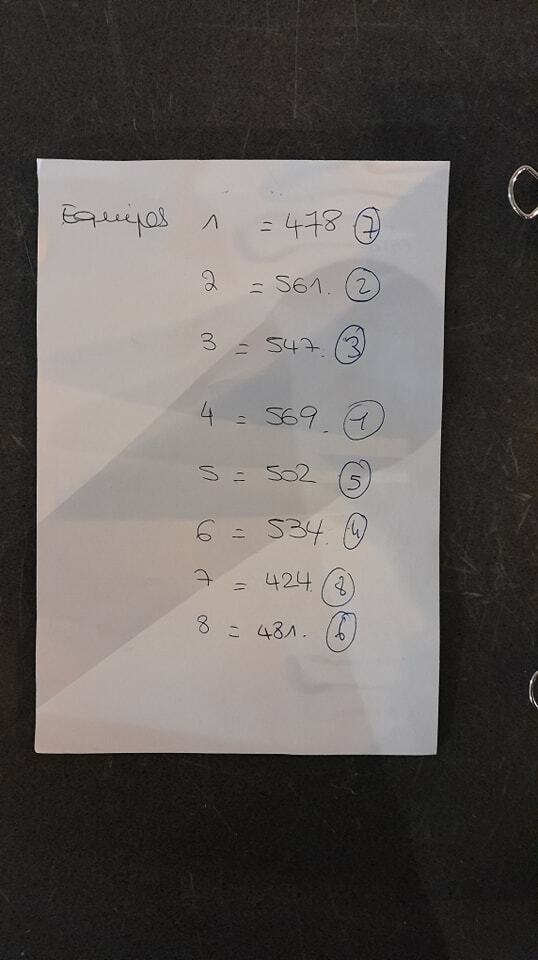 Equipes 1 = 478 7
2 = 561. 2
3 = 547. 3
4 = 569. 1
5 = 502 5
6 = 534. 4
7 = 424. 8
8 = 481. 6